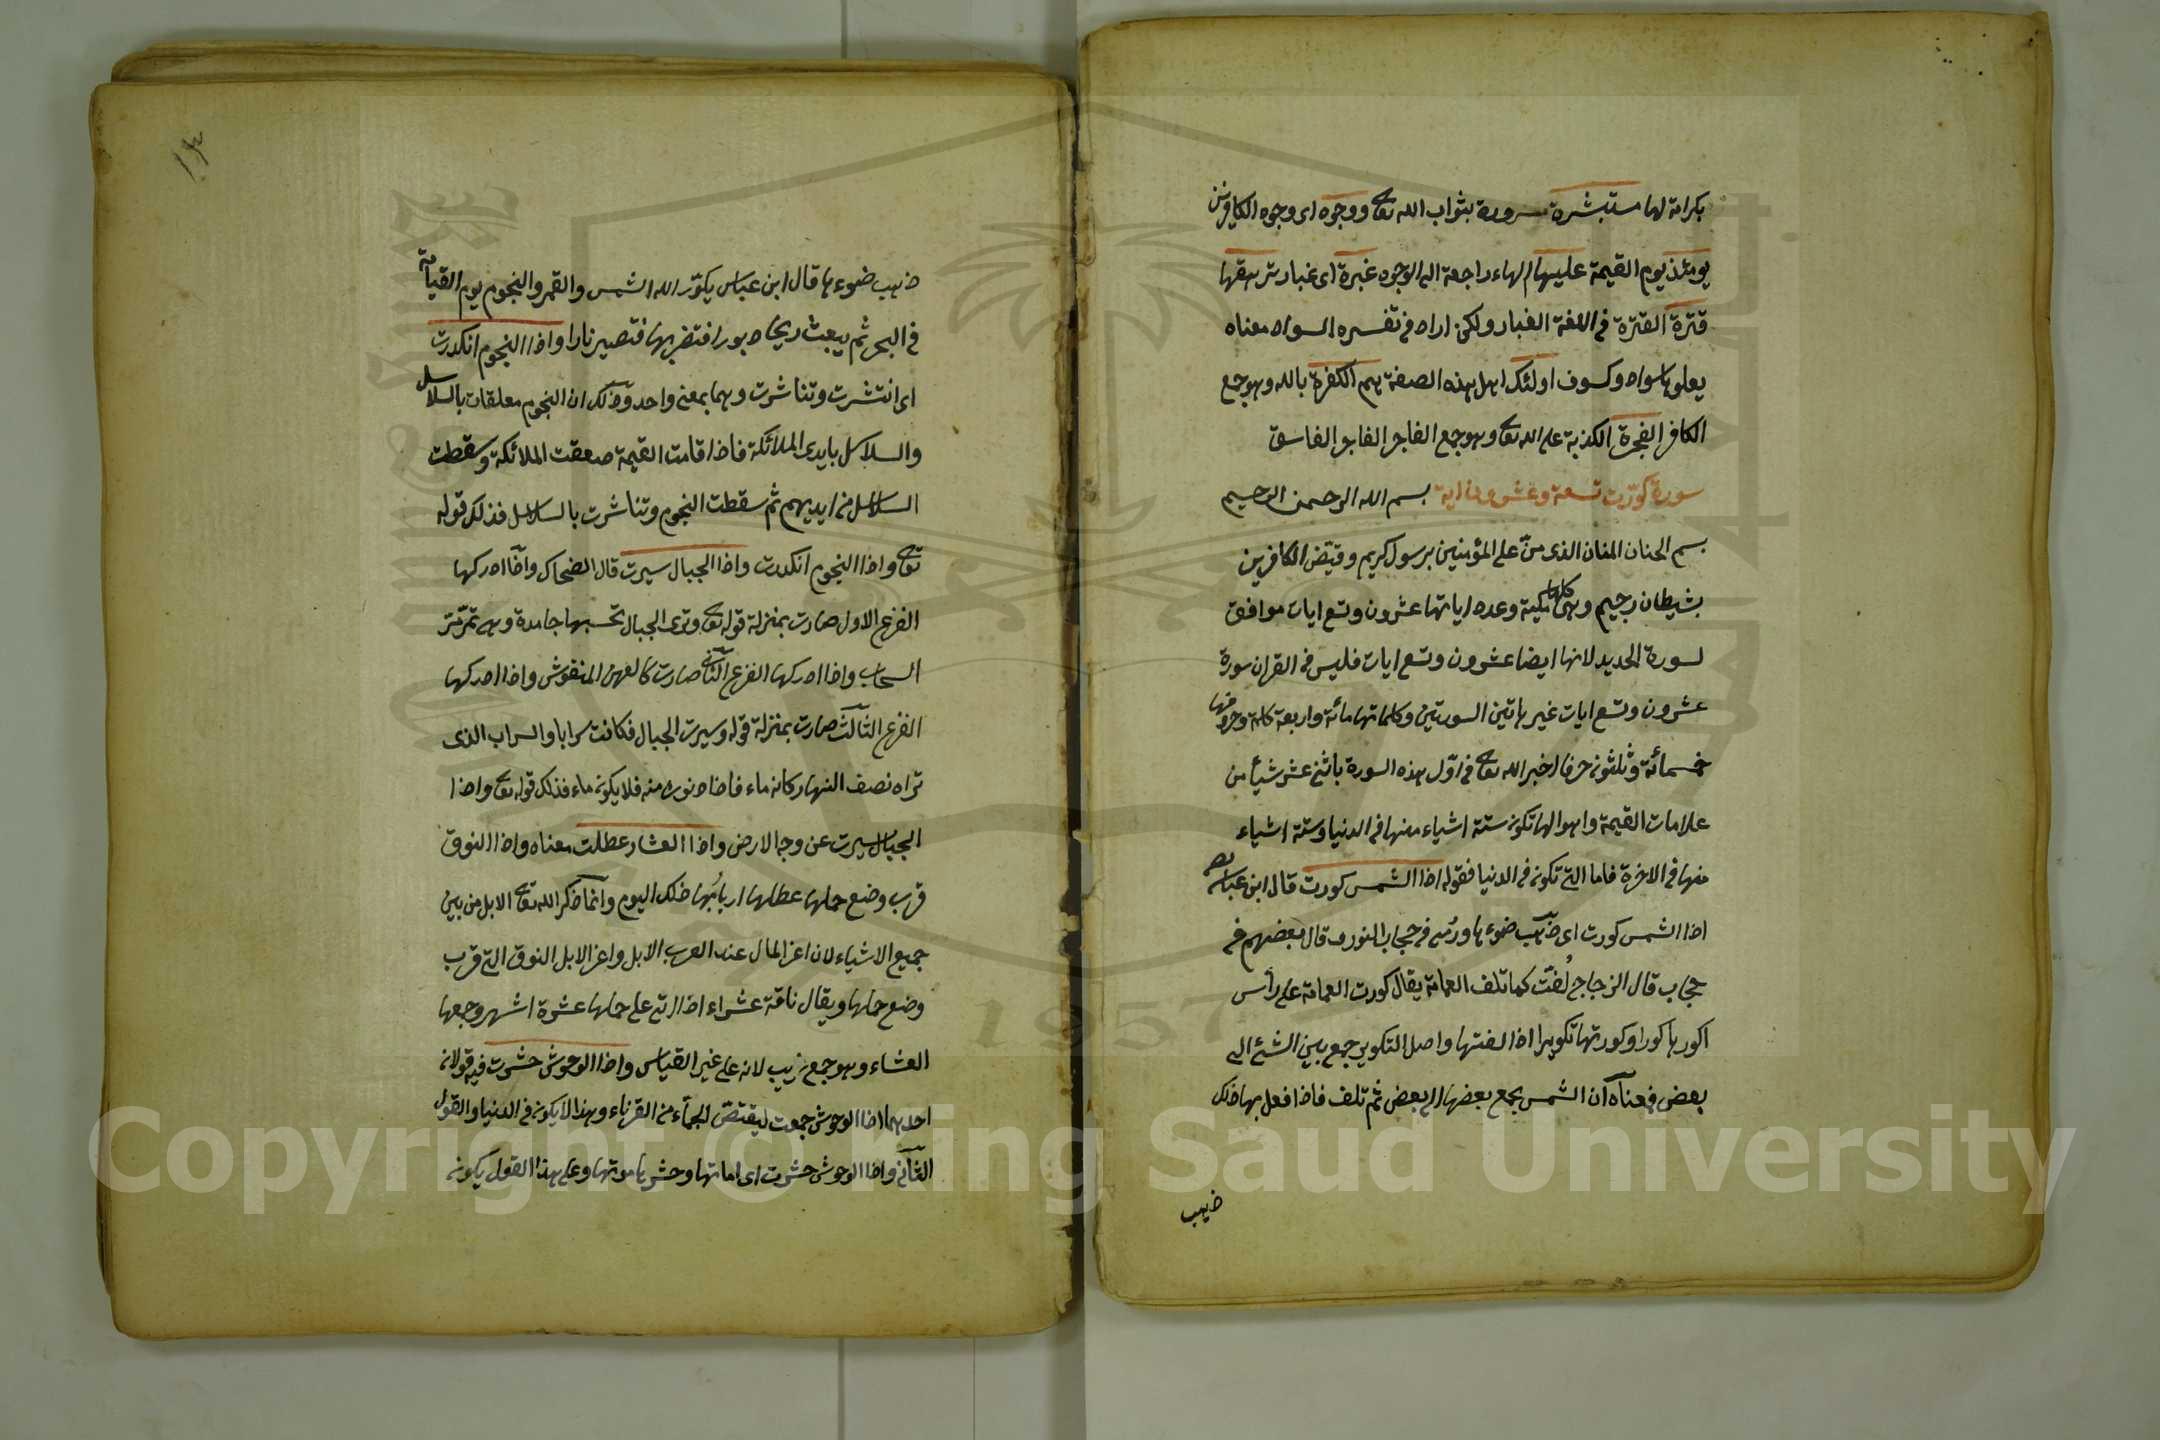 بكرامة لها مستبشرة مسرورة بثواب الله تعالى ووجوه اى وجوه الكافرين
يومئذ يوم القيمة عليها الهاء راجعة الى الوجوه غبرة اى غبار ترهقها
قترة القترة فى اللغة الغبار ولكن اراد فى تفسره السواد معناه
يعلوها سواد وكسوف اولئك اهل هذه الصفة هم الكفرة بالله وهو جمع
الكافر الفجرة الكذبة على الله تعالى وهو جمع الفاجر الفاجر الفاسق
سورة كوّرت تسعة وعشرون اية بسم الله الرحمن الرحيم
بسم الحنان المنان الذى منّ على المؤمنين برسول كريم وقيّض الكافرين
بشيطان رجيم وهى كلها مكية وعدد اياتها عشرون وتسع ايات موافق
لسورة الحديد لانها ايضا عشرون وتسع ايات فليس فى القران سورة
عشرون وتسع ايات غير هاتين السورتين وكلماتها مائة واربعة كلمة وحروفها
خمسمائة وثلثون حرفا اخبر الله تعالى فى اوّل هذه السورة باثنى عشر شيأ من
علامات القيمة واهوالها تكون ستة اشياء منها فى الدنيا وستة اشياء
منها فى الاخرة فاما التى تكون فى الدنيا فقوله اذا الشمس كورت قال ابن عباس
اذا الشمس كورت اى ذهب ضوءها ورُمى فى حجاب النور وقال بعضهم فى
حجاب قال الزجاج لُفّت كما تلف العمامة يقال كورت العمامة على رأس
اكورها كورا وكورتها تكويرا اذا لففتها واصل التكوير جمع بعض الشئ الى
بعض فمعناه ان الشمس يجمع بعضها الى بعض ثم تلف فاذا فعل بها ذلك
ذهب
ذهب ضوءها قال ابن عباس يكوّر الله الشمس والقمر والنجوم يوم القيامة
فى البحر ثم يبعث ريحا دبورا فتضربها فتصير نارا واذا النجوم انكدرت
اى انتشرت وتناثرت وهما بمعنى واحد وذلك ان النجوم معلقات بالسلاسل
والسلاسل بايدى الملائكة فاذا قامت القيمة صعقت الملائكة وسقطت
السلاسل من ايديهم ثم سقطت النجوم وتناثرت بالسلاسل فذلك قوله
تعالى واذا النجوم انكدرت واذا الجبال سيرت قال الضحاك واذا ادركها
الفزع الاول صارت بمنزلة قوله تعالى وترى الجبال تحسبها جامدة وهى تمرّ مرّ
السحاب واذا ادركها الفزع الثانى صارت كالعهن المنفوش واذا ادركها
الفزع الثالث صارت بمنزلة قوله وسيرت الجبال فكانت سرابا والسراب الذى
تراه نصف النهار كانه ماء فاذا دنوت منه فلا يكون ماء فذلك قوله تعالى واذا
الجبال سيرت عن وجه الارض واذا العشار عطلت معناه واذا النوق
قرب وضع حملها عطلها اربابُها ذلك اليوم وانما ذكر الله تعالى الابل من بين
جميع الاشياء لان اعز المال عند العرب الابل واعز الابل النوق التى قرب
وضع حملها ويقال ناقة عشراء اذا اتى على حملها عشرة اشهر وجمعها
العشاء وهو جمع غريب لانه على غير القياس واذا الوحوش حشرت فيه قولان
احدهما اذا الوحوش جمعت ليقتصّ الجمّاء من القرناء وهذا لا يكون فى الدنيا والقول
الثانى واذا الوحوش حشرت اى اماتها وحشرها موتها وعلى هذا القول يكون
Copyright © King Saud University
1957